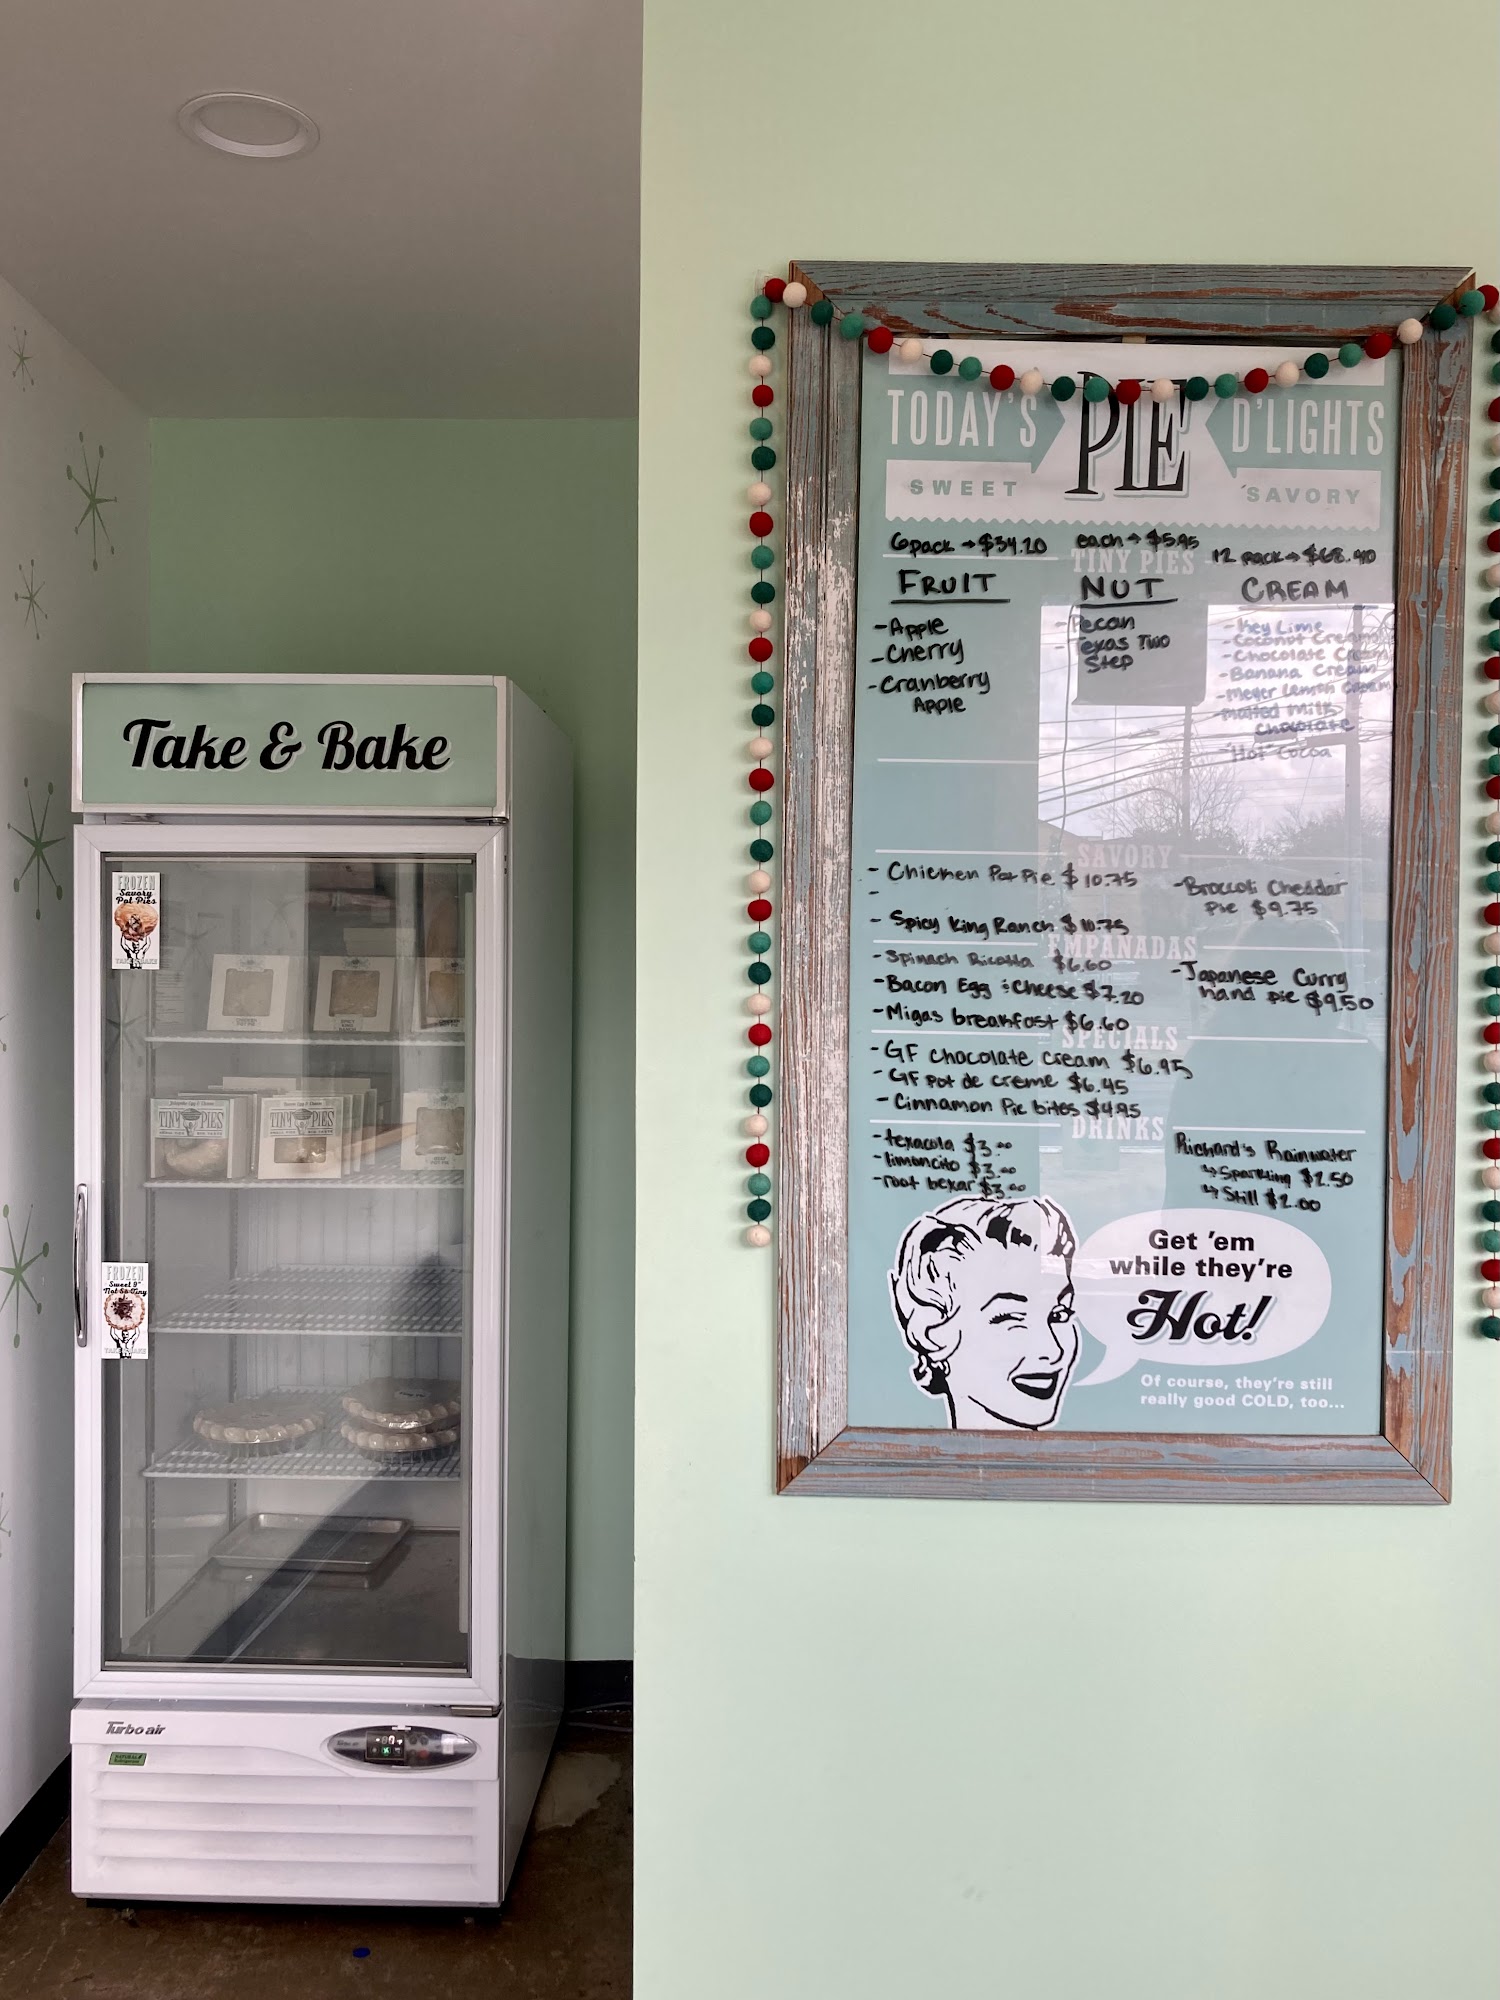 Take & Bake
FROZEN
Savory
Pot Pies
TAKE & BAKE
TINY PIES
TINY PIES
FROZEN
Sweet 9"
Not So Tiny
TAKE & BAKE
Turbo air
TODAY'S PIE D'LIGHTS
SWEET SAVORY
6 pack → $34.20 each → $5.95 12 pack → $68.40
TINY PIES
FRUIT NUT CREAM
- Apple
- Cherry
- Cranberry
Apple
- Pecan
- Texas Two
Step
- Key Lime
- Coconut Cream
- Chocolate Cream
- Banana Cream
- Meyer Lemon Cream
- Malted Milk
Chocolate
- "Hot" Cocoa
SAVORY
- Chicken Pot Pie $10.75
-
- Spicy King Ranch $10.75
- Broccoli Cheddar
Pie $9.75
EMPANADAS
- Spinach Ricotta $6.60
- Bacon Egg & Cheese $7.20
- Migas breakfast $6.60
- Japanese Curry
hand pie $9.50
SPECIALS
- GF chocolate cream $6.95
- GF pot de creme $6.45
- Cinnamon Pie bites $4.95
DRINKS
- texacola $3.00
- limoncito $3.00
- root bexar $3.00
Richard's Rainwater
↳ Sparkling $2.50
↳ Still $2.00
Get 'em
while they're
Hot!
Of course, they're still
really good COLD, too...